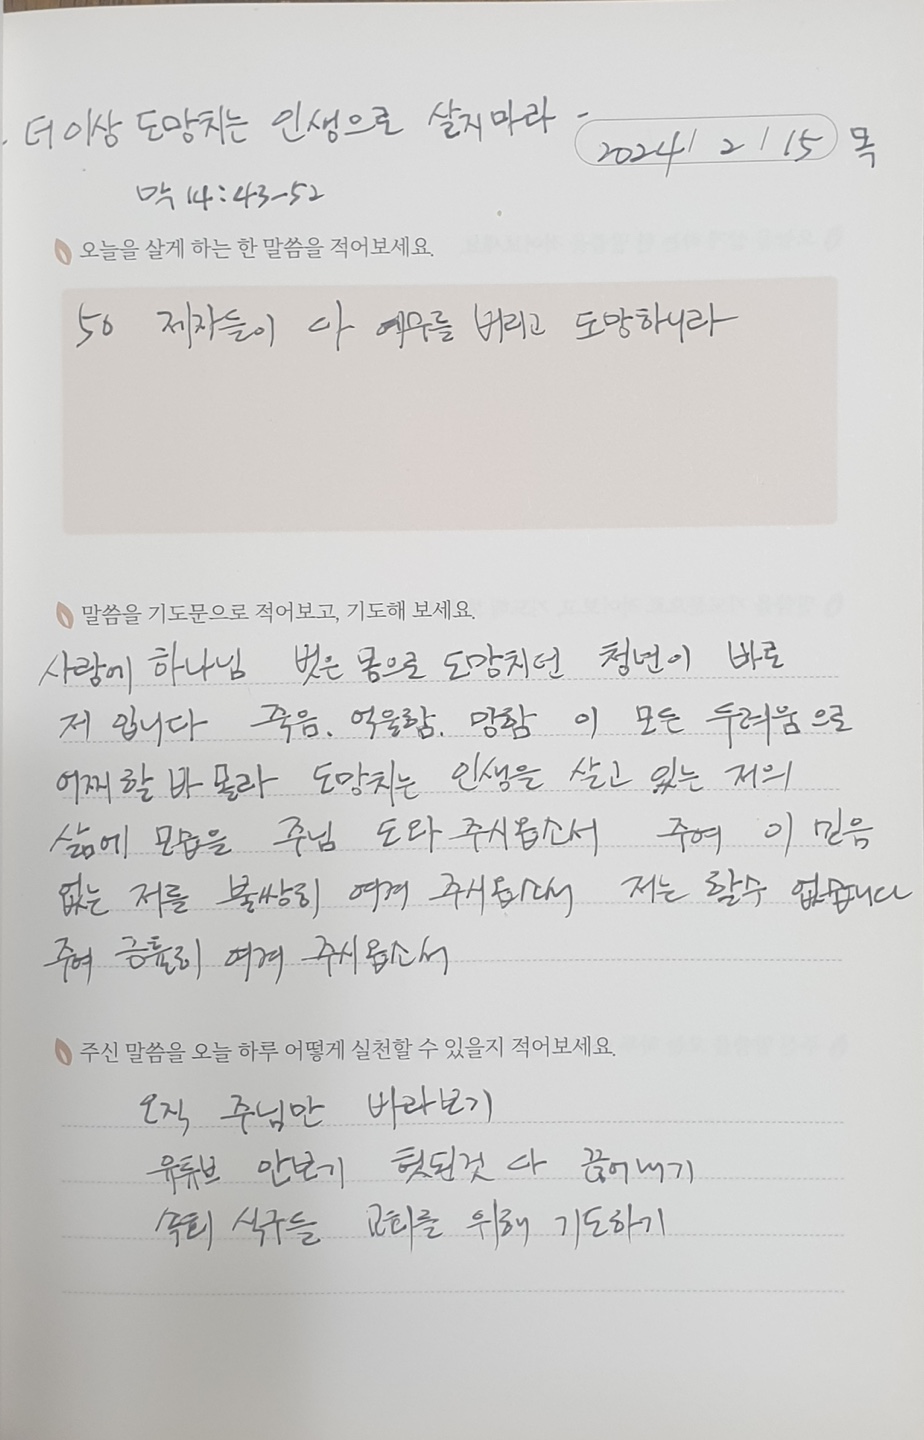 - 더 이상 도망치는 인생으로 살지마라 -
2024 / 2 / 15 목
막 14:43-52
오늘을 살게 하는 한 말씀을 적어보세요.
50 제자들이 다 예수를 버리고 도망하니라
말씀을 기도문으로 적어보고, 기도해 보세요.
사랑에 하나님 벗은 몸으로 도망치던 청년이 바로
저 입니다 죽음. 억울함. 망함 이 모든 두려움으로
어찌 할 바 몰라 도망치는 인생을 살고 있는 저의
삶에 모습을 주님 도와 주시옵소서 주여 이 믿음
없는 저를 불쌍히 여겨 주시옵소서 저는 할수 없습니다
주여 긍휼히 여겨 주시옵소서
주신 말씀을 오늘 하루 어떻게 실천할 수 있을지 적어보세요.
오직 주님만 바라보기
유튜브 안보기 헛된것 다 끊어내기
속회 식구들 교회를 위해 기도하기